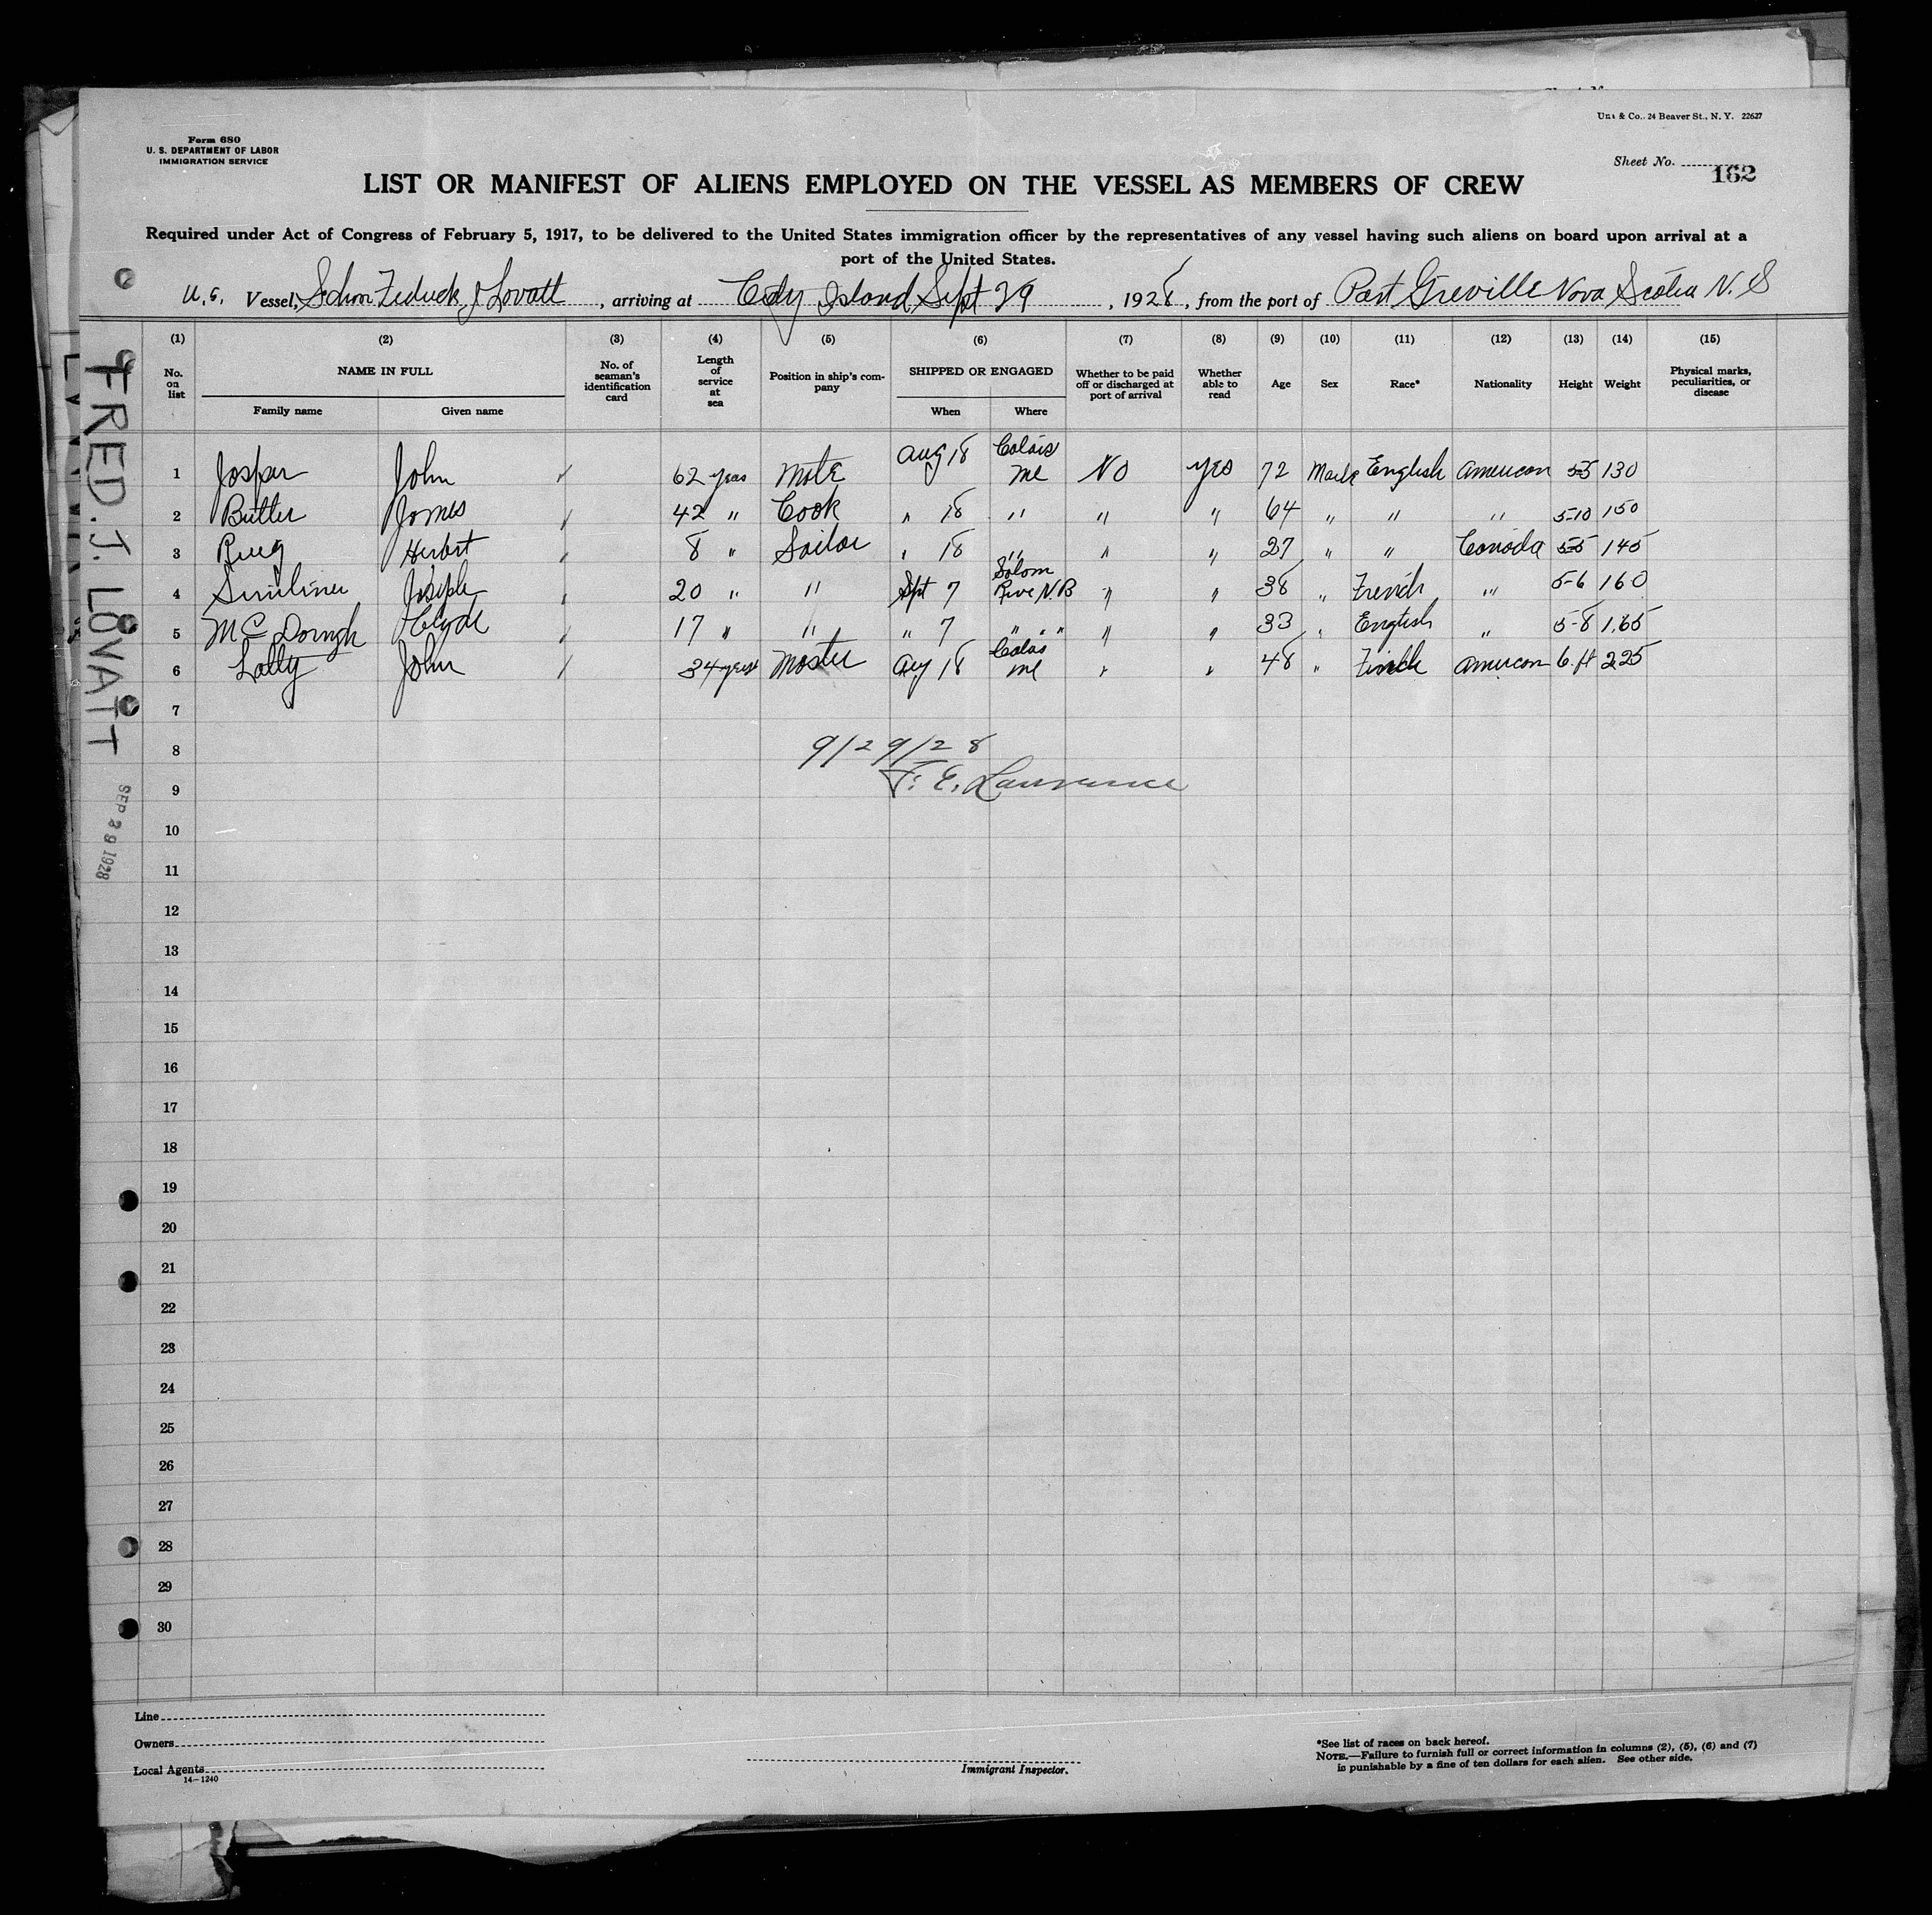 Form 680
U. S. DEPARTMENT OF LABOR
IMMIGRATION SERVICE
& Co., 24 Beaver St., N. Y. 22627
Sheet No. 162
LIST OR MANIFEST OF ALIENS EMPLOYED ON THE VESSEL AS MEMBERS OF CREW
Required under Act of Congress of February 5, 1917, to be delivered to the United States immigration officer by the representatives of any vessel having such aliens on board upon arrival at a
port of the United States.
U.S. Vessel, Schnr J Lovatt, arriving at City Island Sept 29, 1928, from the port of Port Greville Nova Scotia N. S
(1) (2) (3) (4) (5) (6) (7) (8) (9) (10) (11) (12) (13) (14) (15)
No. on list NAME IN FULL No. of seaman's identification card Length of service at sea Position in ship's company SHIPPED OR ENGAGED Whether to be paid off or discharged at port of arrival Whether able to read Age Sex Race* Nationality Height Weight Physical marks, peculiarities, or disease
Family name Given name When Where
1 Jospar John 62 years Mate Aug 18 Calais Me No yes 72 Male English American 5-5 130
2 Butler James 42 " Cook " 18 " " " 64 " " " 5-10 150
3 Herbert 8 " Sailor " 18 " " " 27 " " Canada 5-5 145
4 Joseph 20 " " Spt 7 Salom Rive N.B " " 38 " French " 5-6 160
5 Clyde 17 " " " 7 " " " " " 33 " English " 5-8 165
6 Lolly John 34 years Master Aug 18 Calais Me " " 48 " French American 6 ft 225
7
8
9/29/28
9
F. E. Lawrence
10
11
12
13
14
15
16
17
18
19
20
21
22
23
24
25
26
27
28
29
30
FRED. J. LOVATT
SEP 29 1928
Line
Owners
Local Agents
14-1240
Immigrant Inspector.
*See list of races on back hereof.
NOTE.—Failure to furnish full or correct information in columns (2), (5), (6) and (7)
is punishable by a fine of ten dollars for each alien. See other side.